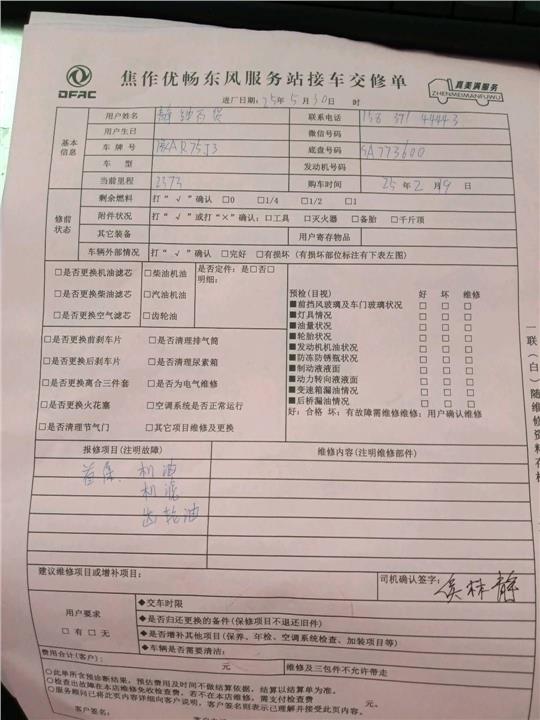 DFAC
焦作优畅东风服务站接车交修单
真美满服务
ZHENMEIMANFUWU
进厂日期：25年 5 月 30日 时
基本信息
用户姓名 联系电话
用户生日 微信号码
车牌号 底盘号码 SA773600
车型 发动机号码
当前里程 2373 购车时间 25 年 2 月 9 日
修前状态
剩余燃料 打“√”确认 □0 □1/4 □1/2 □1
附件状况 打“√”或打“×”确认：□工具 □灭火器 □备胎 □千斤顶
其它装备 用户寄存物品
车辆外部情况 打“√”确认 □完好 □有损坏（有损坏部位标注有下表左图）
□是否更换机油滤芯 □柴油机油 是否定件：是□否□
明细：
□是否更换柴油滤芯 □汽油机油
□是否更换空气滤芯 □齿轮油
□是否更换前刹车片 □是否清理排气筒
□是否更换后刹车片 □是否清理尿素箱
□是否更换离合三件套 □是否为电气维修
□是否更换火花塞 □空调系统是否正常运行
□是否清理节气门 □其它项目维修及更换
预检(目视) 好 坏 维修
■前挡风玻璃及车门玻璃状况 □ □ □
■灯具情况 □ □ □
■油量状况 □ □ □
■轮胎状况 □ □ □
■发动机机油状况 □ □ □
■防冻防锈瓶状况 □ □ □
■制动液液面 □ □ □
■动力转向液液面 □ □ □
■变速箱漏油情况 □ □ □
■后桥漏油情况 □ □ □
好：合格 坏：有故障需维修维修：用户确认维修
报修项目(注明故障) 维修内容(注明维修部件)
首保. 机油
机滤
齿轮油
建议维修项目或增补项目：
司机确认签字：
用户要求
□有 □无
◆交车时限
◆是否归还更换的备件(保修项目不退还旧件)
◆是否增补其他项目(保养、年检、空调系统检查、加装项目等)
◆车辆是否需要清洁：
费用合计(客户)： 元 维修及三包件不允许带走
○此单所含预诊断结果，预估费用及时间不做结算依据，结算以结算单为准。
○检查出故障在本店维修免收检查费，若不在本店维修，需支付检查费 元。
○服务顾问已将此页内容详细向客户说明，客户签名则表示已理解并接受此页内容。
客户签名：
一联（白）随维修资料存档